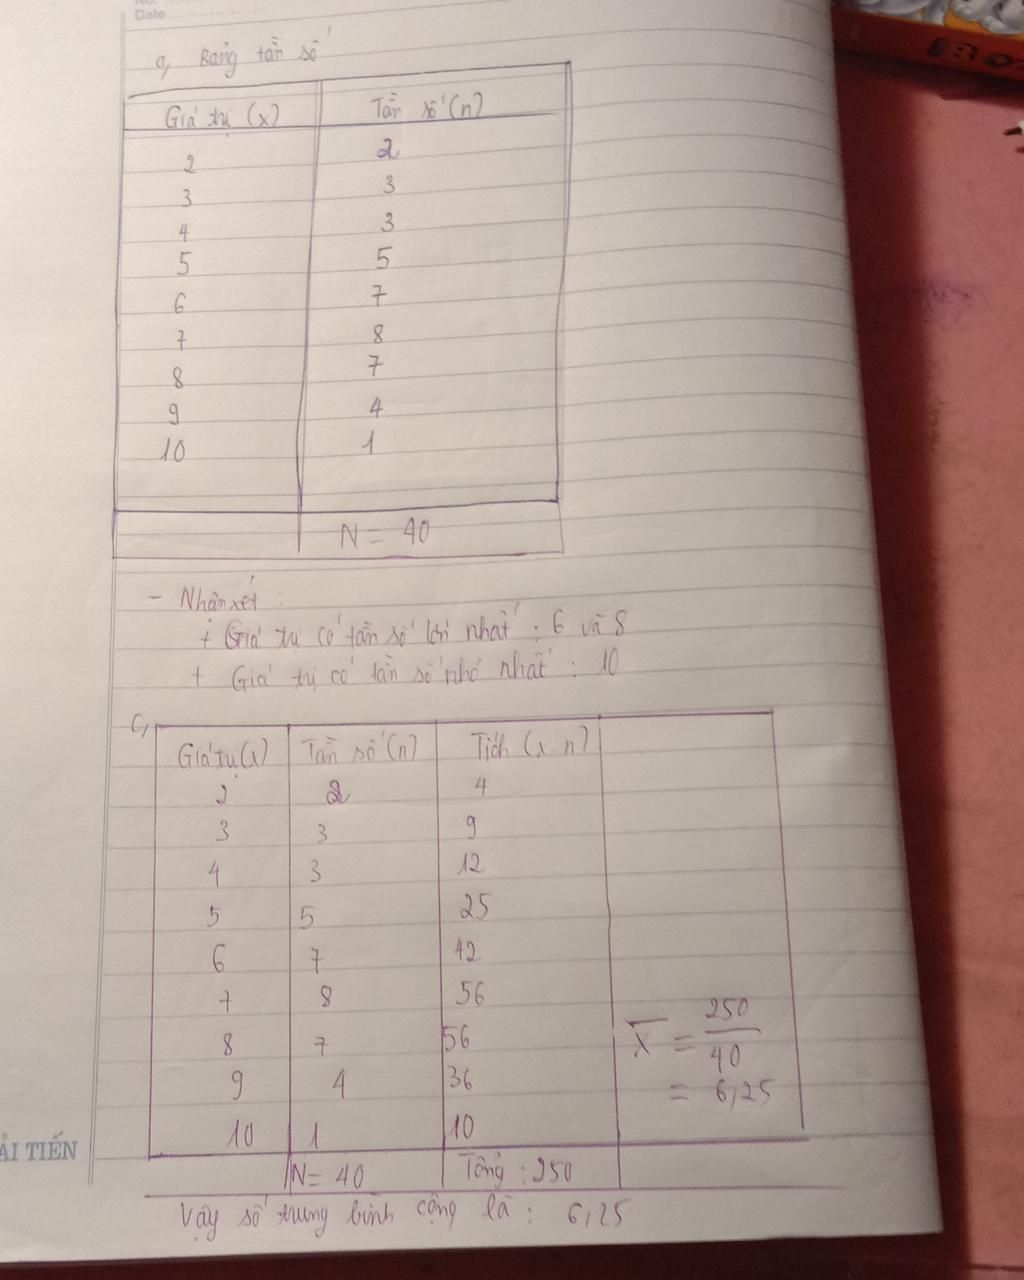 No.
Date
a, Bảng tần số
Giá trị (x) Tần số (n)
2 2
3 3
4 3
5 5
6 7
7 8
8 7
9 4
10 1
N = 40
- Nhận xét :
+ Giá trị có tần số lớn nhất : 6 và 8
+ Giá trị có tần số nhỏ nhất : 10
C,
Giá trị (x) Tần số (n) Tích (x.n)
2 2 4
3 3 9
4 3 12
5 5 25
6 7 42
7 8 56
8 7 56
9 4 36
10 1 10
X̄ = 250/40
= 6,25
N = 40 Tổng : 250
Vậy số trung bình cộng là : 6,25
ẢI TIẾN